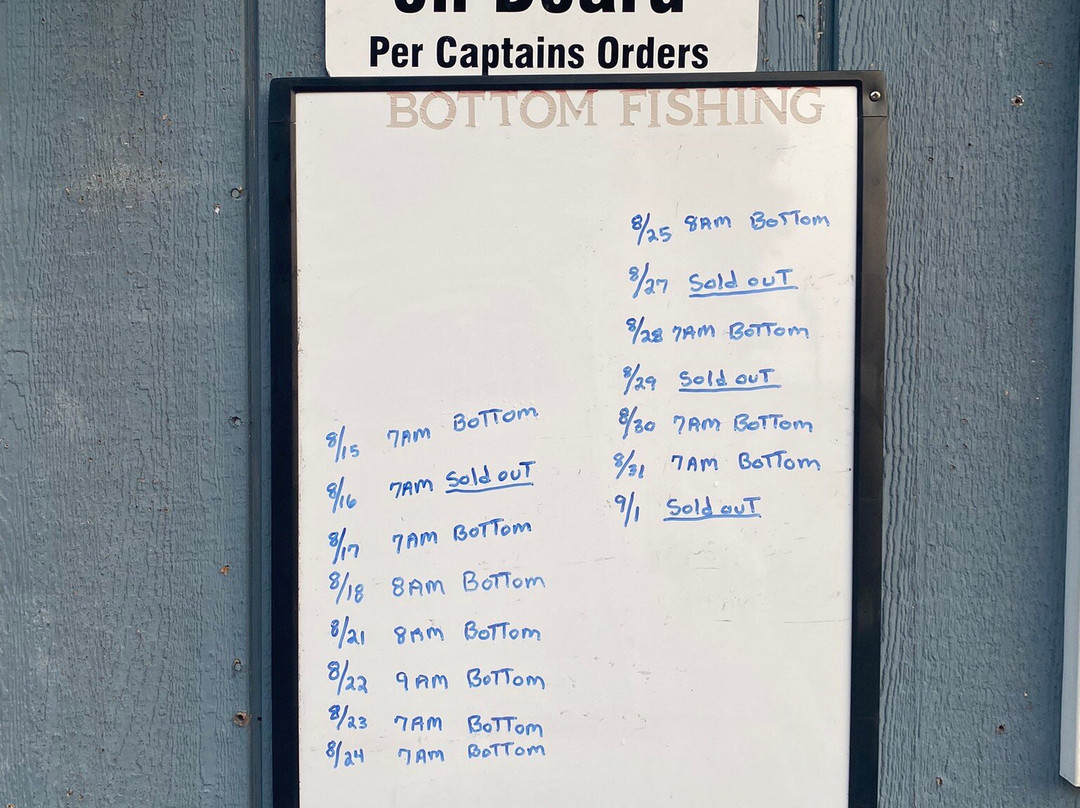 on Board
Per Captains Orders
BOTTOM FISHING
8/15 7AM BOTTOM
8/16 7AM Sold ouT
8/17 7AM BOTTOM
8/18 8AM BOTTOM
8/21 8AM BOTTOM
8/22 9AM BOTTOM
8/23 7AM BOTTOM
8/24 7AM BOTTOM
8/25 8AM BOTTOM
8/27 Sold ouT
8/28 7AM BOTTOM
8/29 Sold ouT
8/30 7AM BOTTOM
8/31 7AM BOTTOM
9/1 Sold ouT